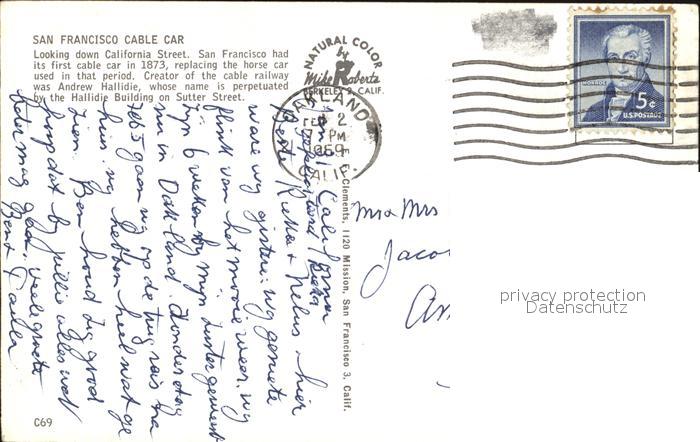 SAN FRANCISCO CABLE CAR
Looking down California Street. San Francisco had
its first cable car in 1873, replacing the horse car
used in that period. Creator of the cable railway
was Andrew Hallidie, whose name is perpetuated
by the Hallidie Building on Sutter Street.
NATURAL COLOR
by
Mike Roberts
BERKELEY 2, CALIF.
OAKLAND
FEB 2
7 PM
1959
CALIF.
MONROE
5¢
U.S. POSTAGE
E. F. Clements, 1120 Mission, San Francisco 3, Calif.
California
Beste Riekie + Nelus, hier
waren wy gisteren wy genieten
flink van het mooie weer, wy
zyn 6 weken by myn zuster geweest
in Oakland. Donderdag
Feb 5 gaan wy op de terug reis na
huis, wy hebben heel wat ge
zien. Ben houd zig goed
hoop dat by jullie alles wat
beter mag gaan, vele groeten
Ben +
Mr & Mrs
Jaco
Am
privacy protection
Datenschutz
C69